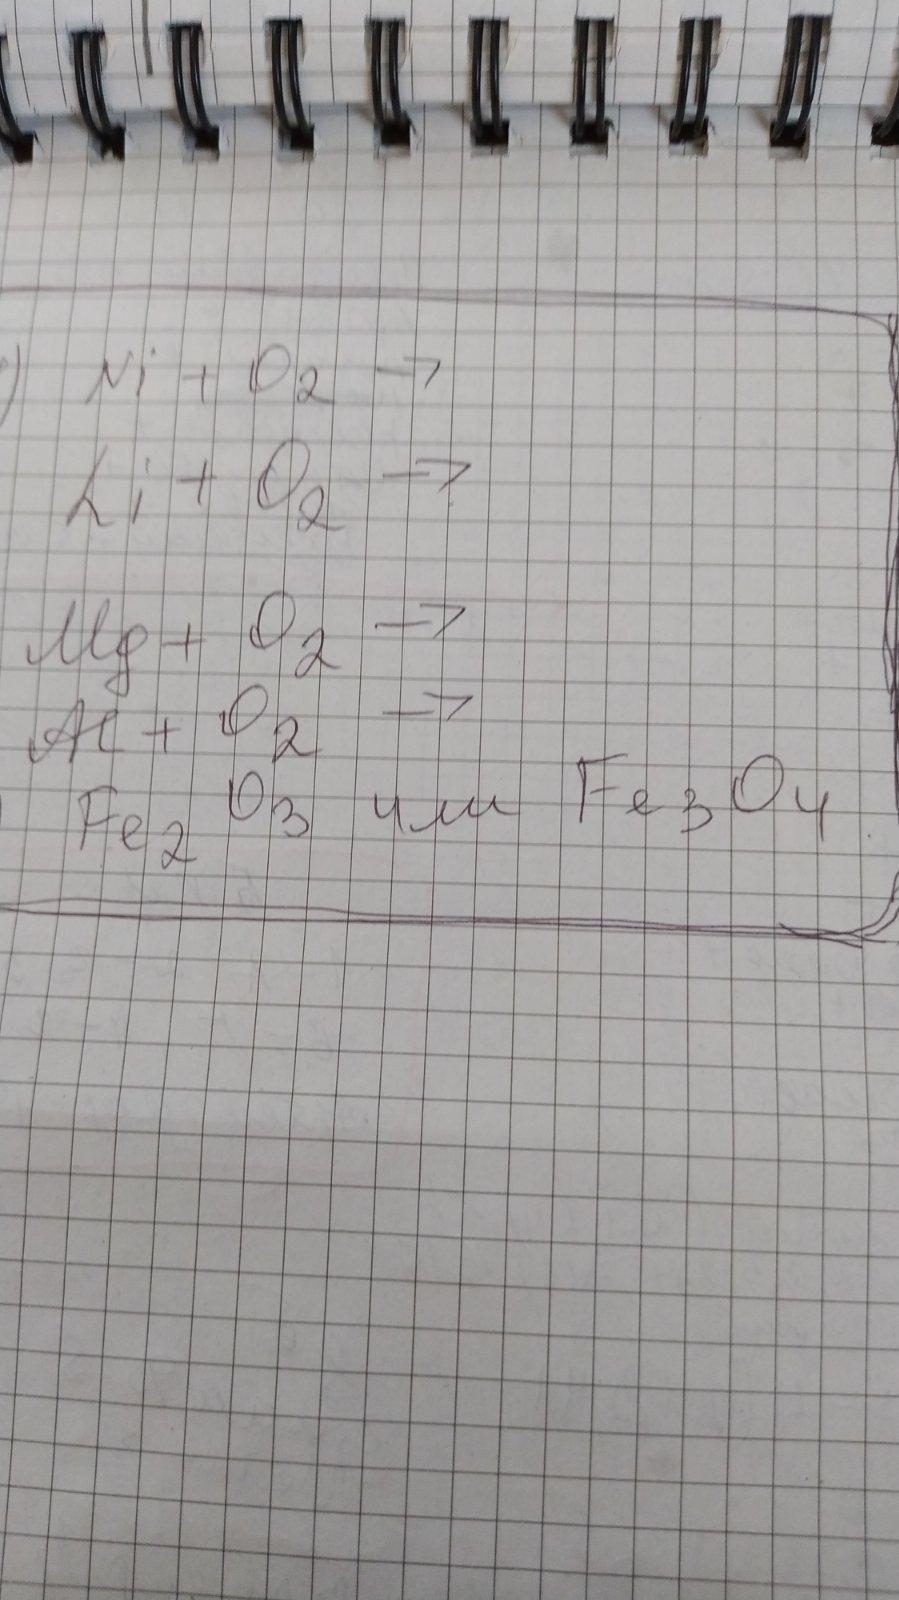 ) Ni + O2 →
Li + O2 →
Mg + O2 →
Al + O2 →
) Fe2 O3 или Fe3O4